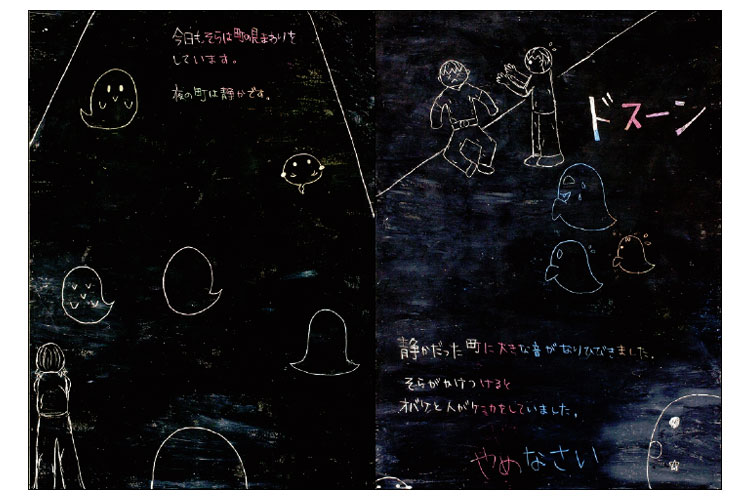 今日もそらは町の見まわりを
しています。
夜の町は静かです。
ドスーン
静かだった町に大きな音がなりひびきました。
そらがかけつけると
オバケと人がケンカをしていました。
やめなさい